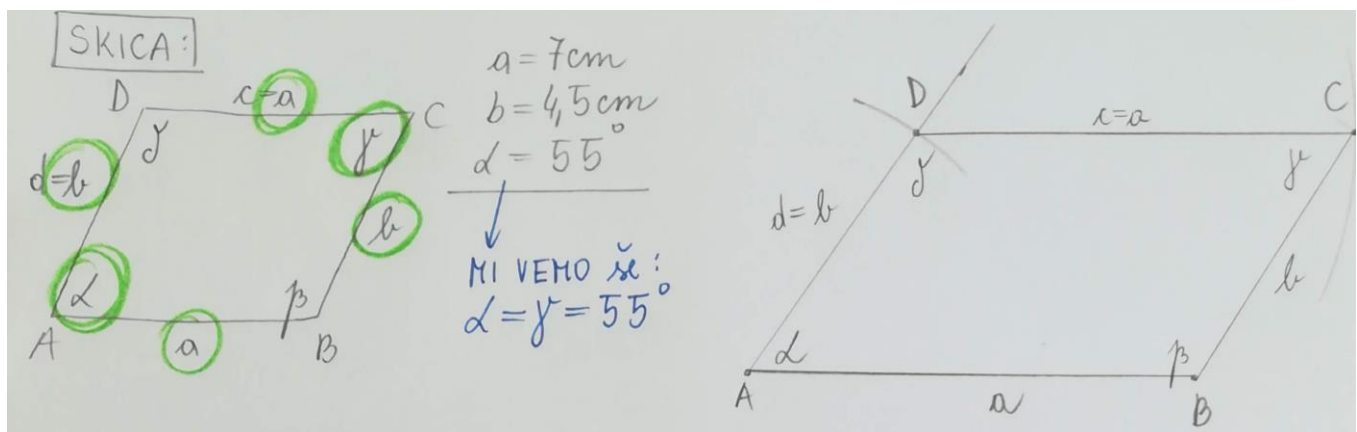 SKICA:
D
c=a
C
δ
γ
d=b
b
α
β
A
a
B
a = 7cm
b = 4,5cm
α = 55°
MI VEMO ŠE:
α = γ = 55°
D
c=a
C
δ
γ
d=b
b
α
β
A
a
B